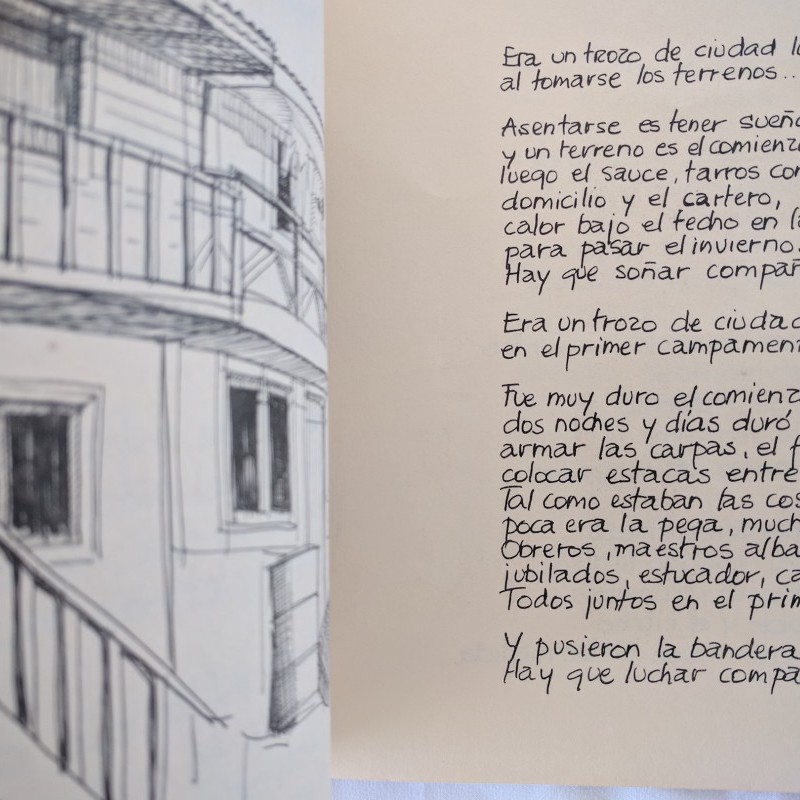 Era un trozo de ciudad
al tomarse los terrenos...
Asentarse es tener
y un terreno es el
luego el sauce, tarros
domicilio y el cartero,
calor bajo el techo en
para pasar el invierno.
Hay que soñar
Era un trozo de
en el primer
Fue muy duro el
dos noches y días duró
armar las carpas, el
colocar estacas entre
Tal como estaban las
poca era la pega,
Obreros, maestros
jubilados, estucador,
Todos juntos en el
Y pusieron la bandera
Hay que luchar